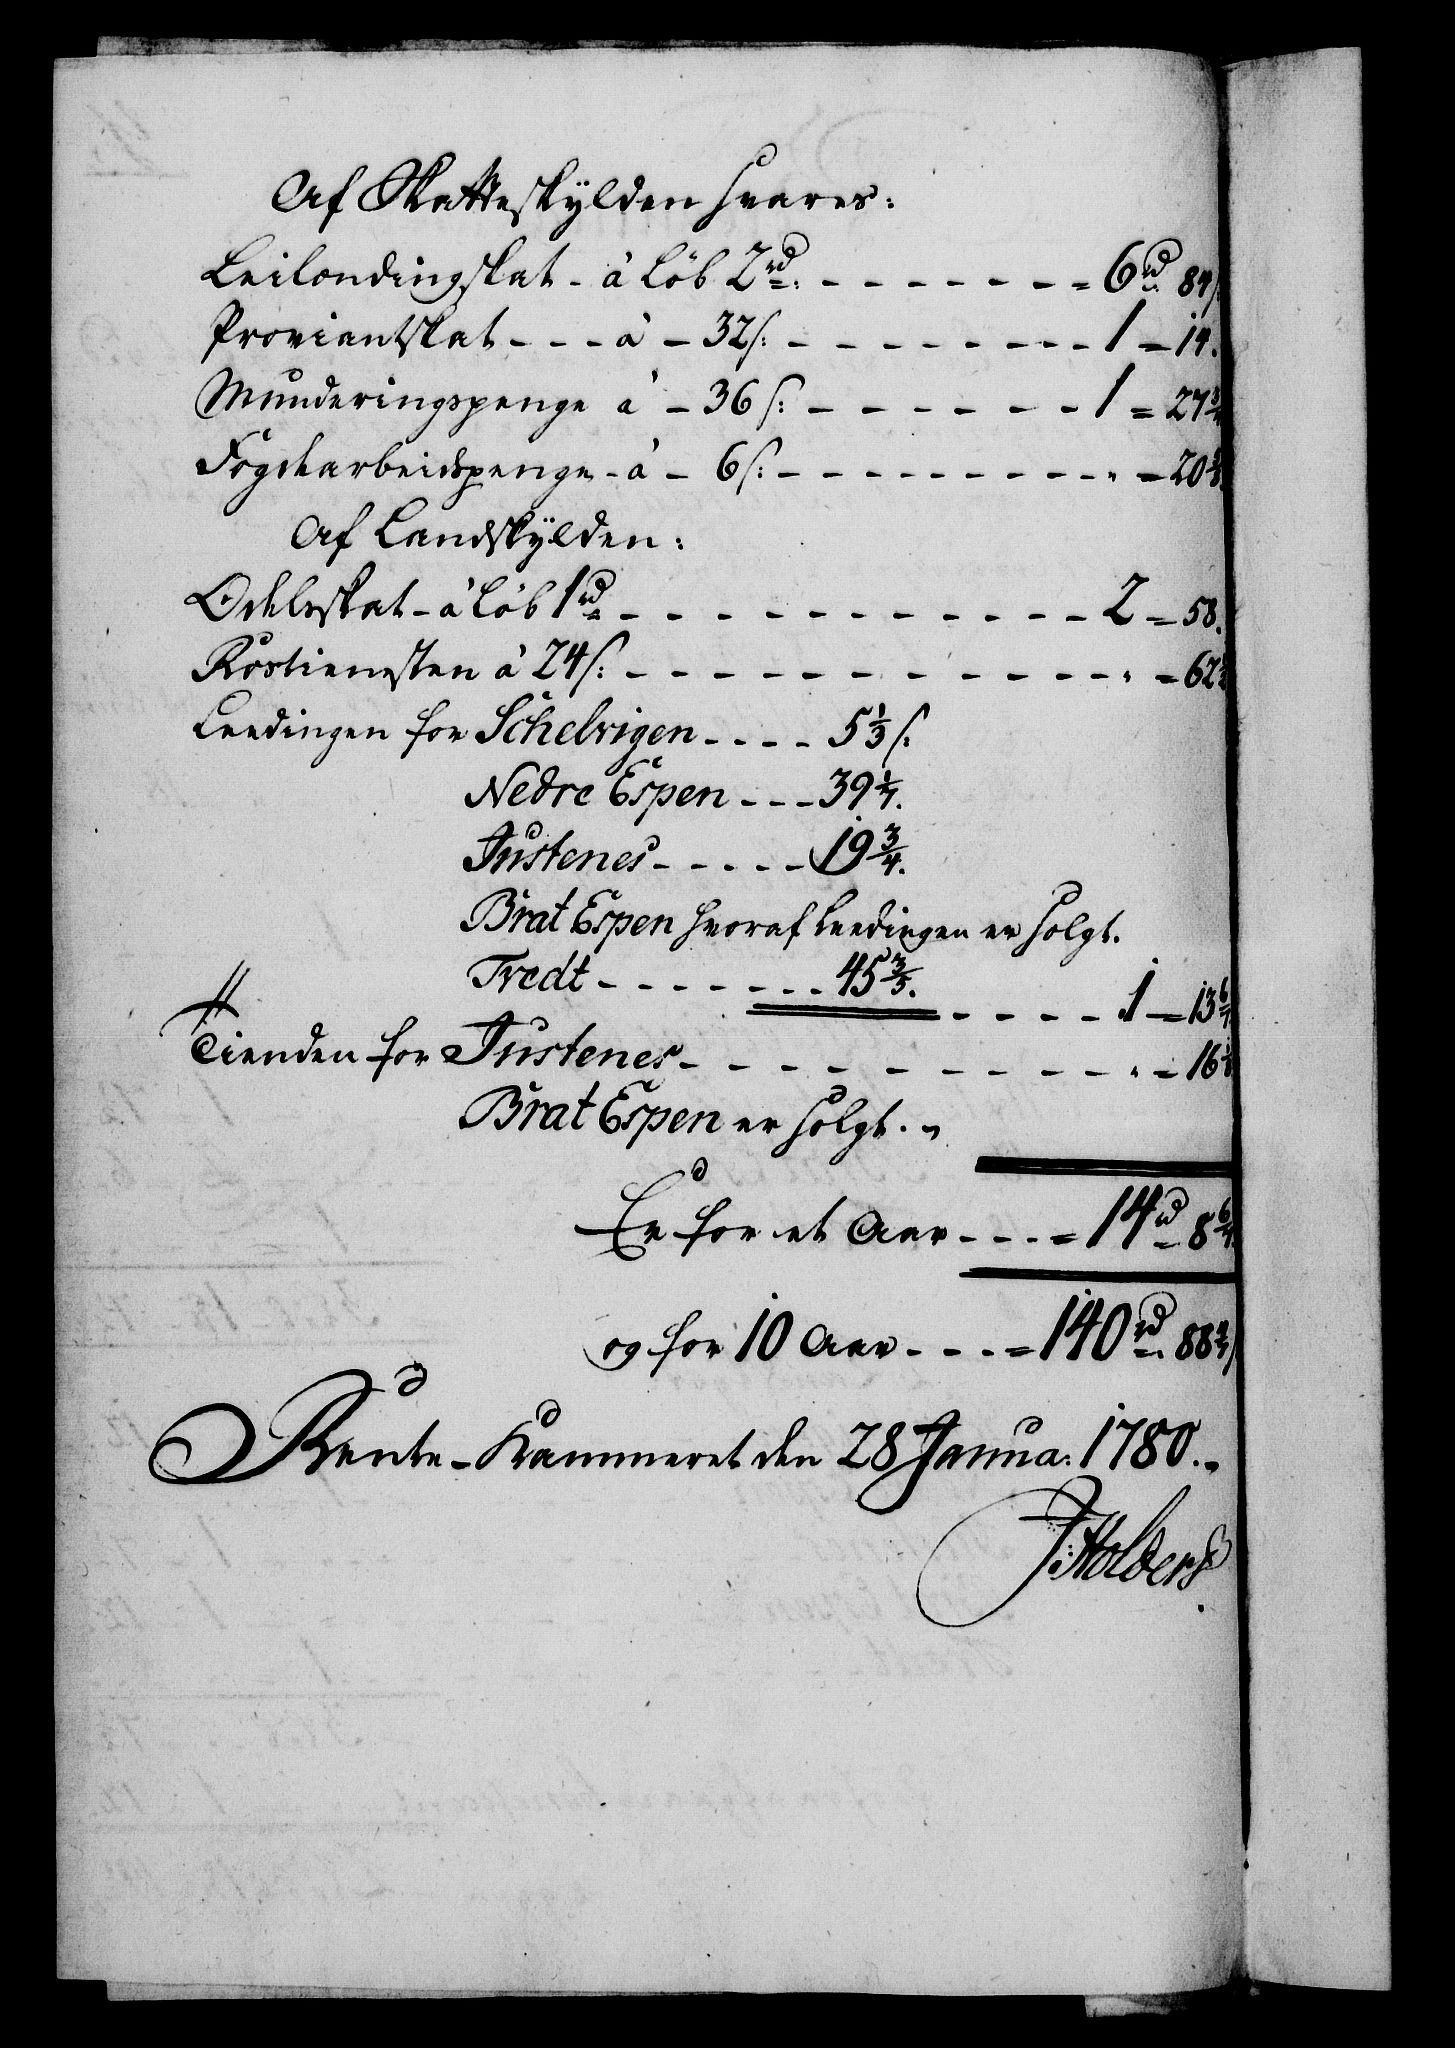 Af Skatteskylden svares:
Leilændingskat - à Löb 2 rd: - - - - - - - = 6 rd: 84 s:
Proviantskat - - - à - 32 s: - - - - - - - - 1 = 14.
Munderingspenge à - 36 s: - - - - - - - 1 = 27 3/4
Fogedarbeidspenge - à - 6 s: - - - - - - - - - " = 20
Af Landskylden:
Odelsskat - à Löb 1 rd - - - - - - - - - - - - 2 = 58.
Rostienesten à 24 s: - - - - - - - - - - - - - " = 62
Leedingen for Schelvigen - - - - 5 1/3 s:
Nedre Espen - - - 39 1/7.
Justenes - - - - - 19 3/4.
Brat Espen hvoraf Leedingen er solgt.
Tredt - - - - - - - 45 3/5.
- - - - - 1 = 13 6/7
Tienden for Justenes - - - - - - - - - - - " = 16
Brat Espen er solgt. "
Er for et Aar - - - = 14 rd 8 6/7
og for 10 Aar - - - = 140 rd: 88 4/7 s
Rente-Kammeret den 28 Janua: 1780. -
J: Holders